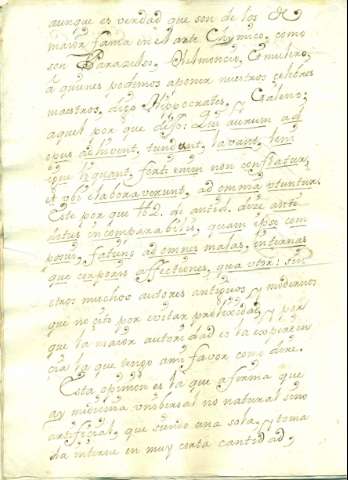 aunque es verdad que son de los de
maior fama in el arte Chymico, como
son Paracelso.
a quienes podemos aponer nuestros celebres
maestros, digo Hippocrates, Galeno:
aquel por que dijo: aurum ad
opus adhivent, tundunt, lavant, leni
que liquant, forti enim non conflatur,
et ubi elaboraverunt, ad omnia vtuntur.
Este por que lib 2. de antid. dize anti
dotus incomparabilis, quam ipse com
posui, faciens ad omnes malas, internas
que corporis affectiones, qua vtor: sin
otros muchos autores antiquos y modernos
que no çito por evitar prolixidad, y por
que la maior autoridad es la experien
cia la que tengo a mi favor como dire.
Esta opinion es la que afirma que
ay medicina vnibersal no natural sino
artificial, que siendo una sola, y toma
da interie en muy certa cantidad,